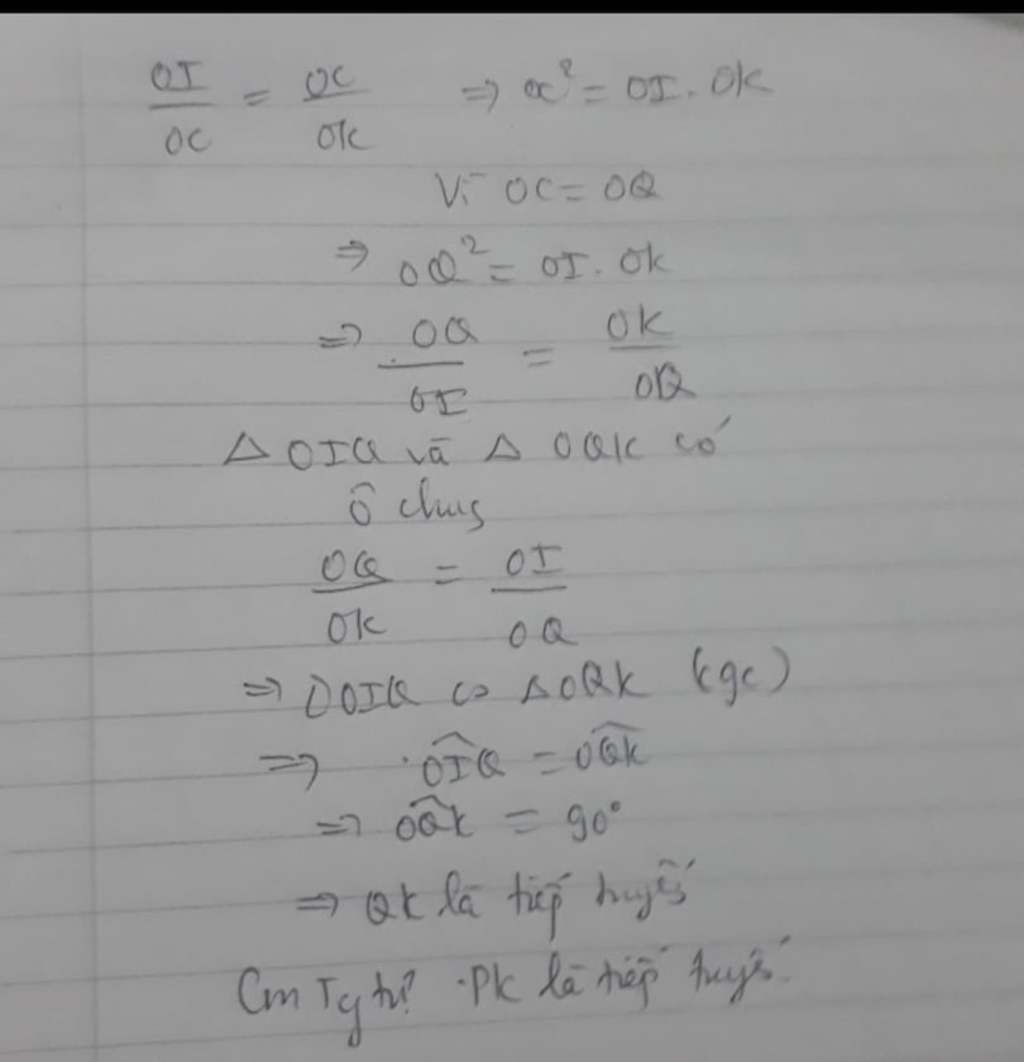 OI/OC = OC/OK ⇒ OC² = OI. OK
Vì OC = OQ
⇒ OQ² = OI. OK
⇒ OQ/OI = OK/OQ
Δ OIQ và Δ OQK có
Ô chung
OQ/OK = OI/OQ
⇒ ΔOIQ ∽ ΔOQK (cgc)
⇒ OÎQ = OQ̂K
⇒ OQ̂K = 90°
⇒ QK là tiếp tuyến
Cm Tg tự PK là tiếp tuyến